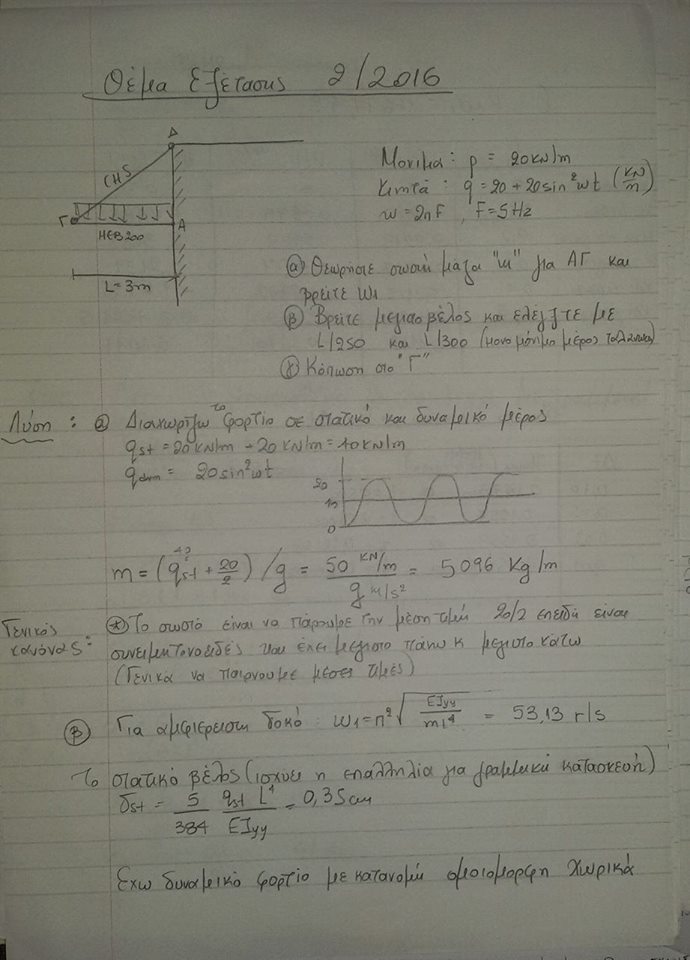 Θέμα Εξέτασης 2/2016
Δ
CHS
Γ
A
HEB 200
L=3m
Μόνιμα: p = 20 kN/m
Κινητά: q = 20+20sin²ωt (kN/m)
ω=2πF, F=5Hz
(α) Θεωρήστε σωστή μάζα "m" για ΑΓ και
βρείτε ω1
(β) Βρείτε μέγιστο βέλος και ελέγξτε με
L/250 και L/300 (μονο μόνιμο μέρος ταλάντωσης)
(γ) Κόπωση στο "Γ"
Λύση: (α) Διαχωρίζω το φορτίο σε στατικό και δυναμικό μέρος
qst = 20 kN/m + 20 kN/m = 40 kN/m
qdyn = 20sin²ωt
20
10
0
m = (qst + 20/2)/g = 50 kN/m / g m/s² = 5096 Kg/m
40
Γενικός κανόνας: (*) Το σωστό είναι να πάρουμε την μέση τιμή 20/2 επειδή είναι
συνημιτονοειδές και έχει μέγιστο πάνω κ μέγιστο κάτω
(Γενικά να παίρνουμε μέσες τιμές)
(β) Για αμφιέρειστη δοκό: ω1=π²√(EIyy/ml⁴) = 53,13 r/s
Το στατικό βέλος (ισχύει η επαλληλία για γραμμική κατασκευή)
δst = 5/384 qst L⁴/EIyy = 0,35cm
Έχω δυναμικό φορτίο με κατανομή ομοιόμορφη χωρικά